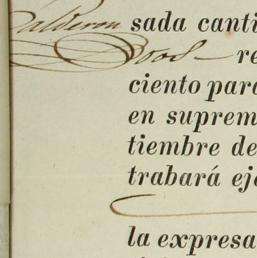 Calderon sada canti
re
ciento para
en suprem
tiembre de
trabará eje
la expresa